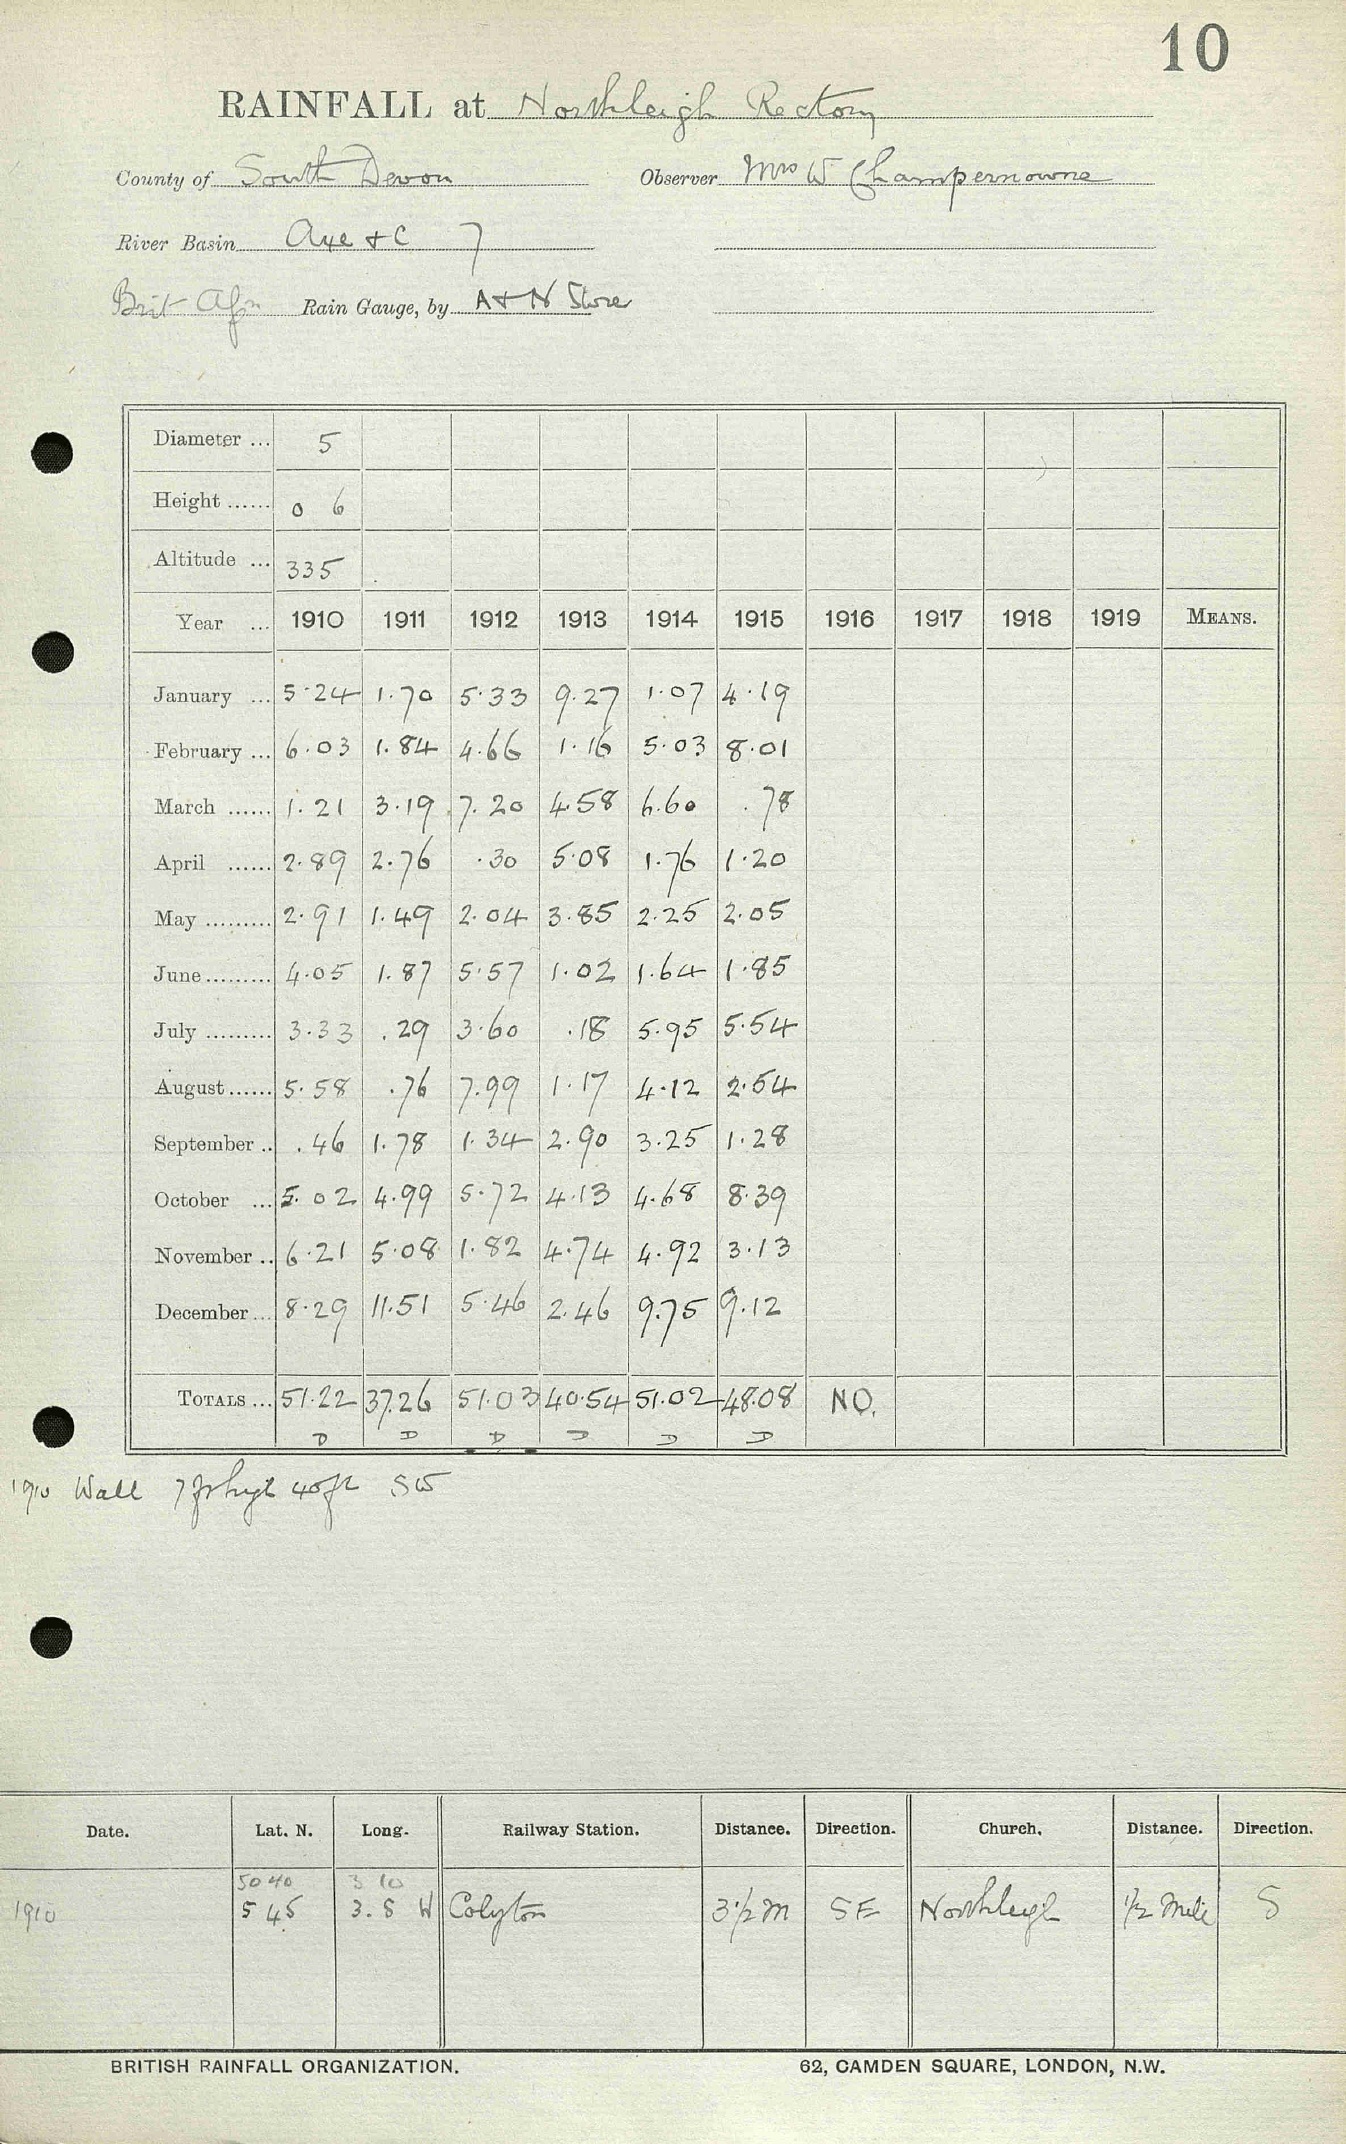 10
RAINFALL at Northleigh Rectory
County of South Devon Observer Mrs W Champernowne
River Basin Axe + C 7
Brit Rain Gauge, by A + N Store
Diameter ... 5
Height ...... 0 6
Altitude ... 335
Year ... 1910 1911 1912 1913 1914 1915 1916 1917 1918 1919 MEANS.
January ... 5.24 1.70 5.33 9.27 1.07 4.19
February ... 6.03 1.84 4.66 1.16 5.03 8.01
March ...... 1.21 3.19 7.20 4.58 6.60 .78
April ...... 2.89 2.76 .30 5.08 1.76 1.20
May ......... 2.91 1.49 2.04 3.85 2.25 2.05
June ......... 4.05 1.87 5.57 1.02 1.64 1.85
July ......... 3.33 .29 3.60 .18 5.95 5.54
August ...... 5.58 .76 7.99 1.17 4.12 2.54
September .. .46 1.78 1.34 2.90 3.25 1.28
October ... 5.02 4.99 5.72 4.13 4.68 8.39
November .. 6.21 5.08 1.82 4.74 4.92 3.13
December ... 8.29 11.51 5.46 2.46 9.75 9.12
TOTALS ... 51.22 37.26 51.03 40.54 51.02 48.08 NO.
D D D D D D
1910 Wall 7 ft hight 40 ft SW
Date. Lat. N. Long. Railway Station. Distance. Direction. Church. Distance. Direction.
50 40 3 10
1910 5 45 3.8 W Colyton 3 1/2 M SE Northleigh 1/2 Mile S
BRITISH RAINFALL ORGANIZATION. 62, CAMDEN SQUARE, LONDON, N.W.